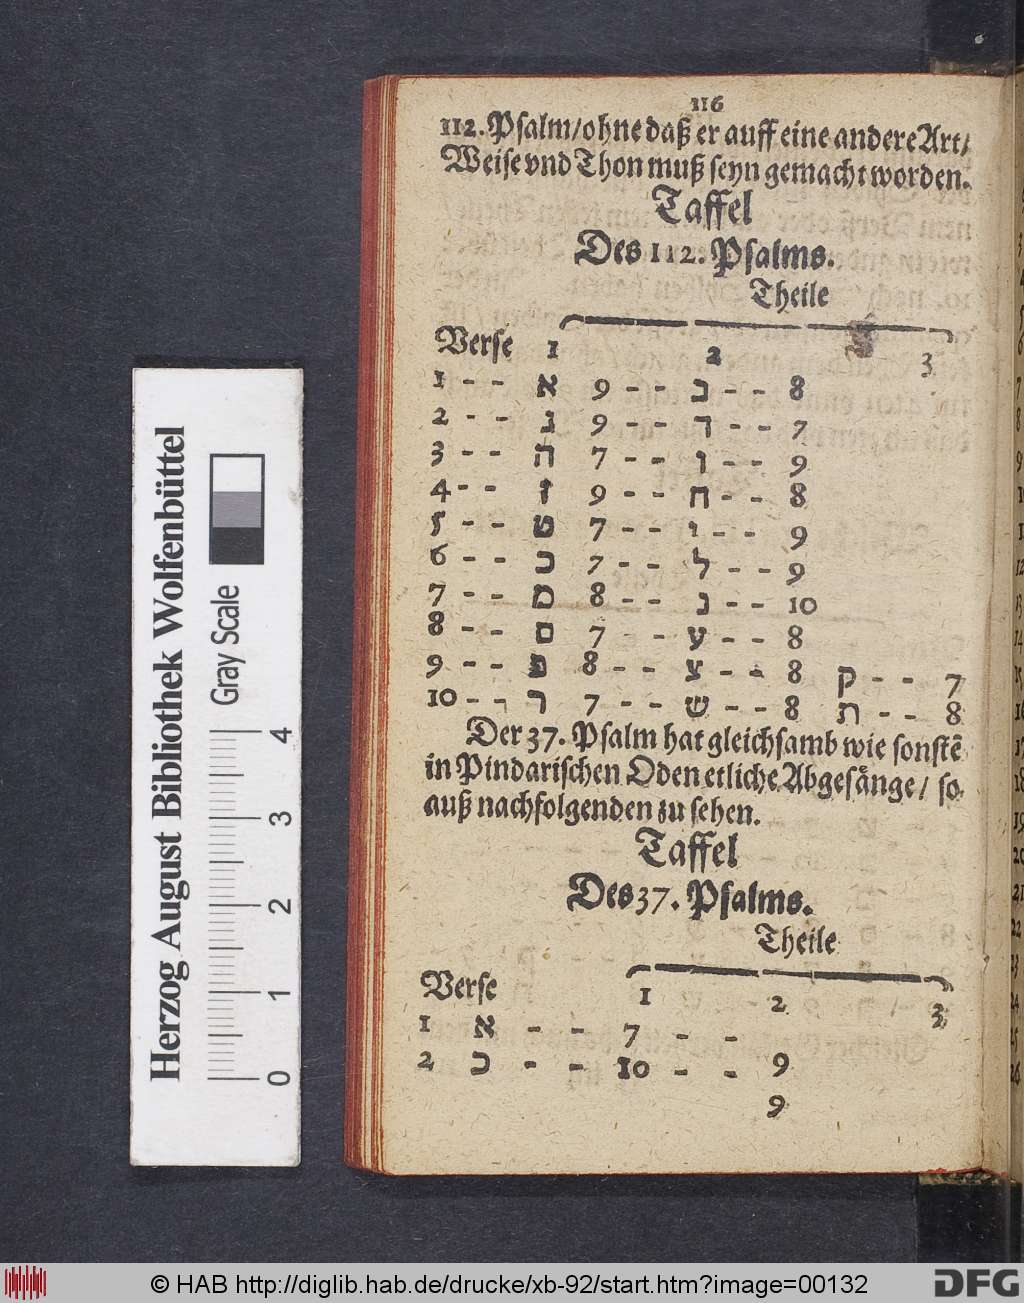 116
112. Psalm/ohne daß er auff eine andere Art/
Weise vnd Thon muß seyn gemacht worden.
Taffel
Des 112. Psalms.
Theile
Verse 1 2 3
1 - - א 9 - - ב - - 8
2 - - ג 9 - - ד - - 7
3 - - ה 7 - - ו - - 9
4 - - ז 9 - - ח - - 8
5 - - ט 7 - - י - - 9
6 - - כ 7 - - ל - - 9
7 - - מ 8 - - נ - - 10
8 - - ם 7 - ע - - 8
9 - - פ 8 - - צ - - 8 ק - - 7
10 - - ר 7 - - ש - - 8 ת - - 8
Der 37. Psalm hat gleichsamb wie sonstẽ
in Pindarischen Oden etliche Abgesänge/ so
auß nachfolgenden zu sehen.
Taffel
Des 37. Psalms.
Theile
Verse 1 2 3
1 א - - 7 - -
2 כ - - 10 - - 9
9
Herzog August Bibliothek Wolfenbüttel
Gray Scale
0 1 2 3 4
© HAB http://diglib.hab.de/drucke/xb-92/start.htm?image=00132
DFG